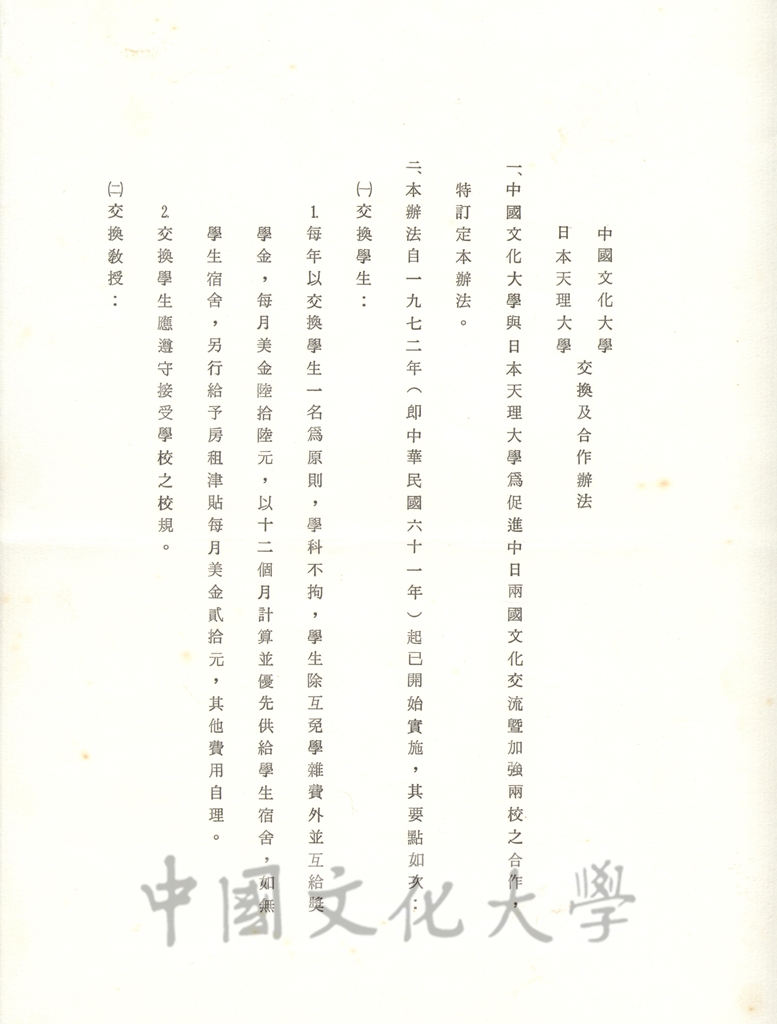 中國文化大學
日本天理大學
交換及合作辦法
一、中國文化大學與日本天理大學爲促進中日兩國文化交流暨加強兩校之合作，
特訂定本辦法。
二、本辦法自一九七二年（即中華民國六十一年）起已開始實施，其要點如次：
㈠交換學生：
1.每年以交換學生一名爲原則，學科不拘，學生除互免學雜費外並互給獎
學金，每月美金陸拾陸元，以十二個月計算並優先供給學生宿舍，如無
學生宿舍，另行給予房租津貼每月美金貳拾元，其他費用自理。
2.交換學生應遵守接受學校之校規。
㈡交換教授：
中國文化大學